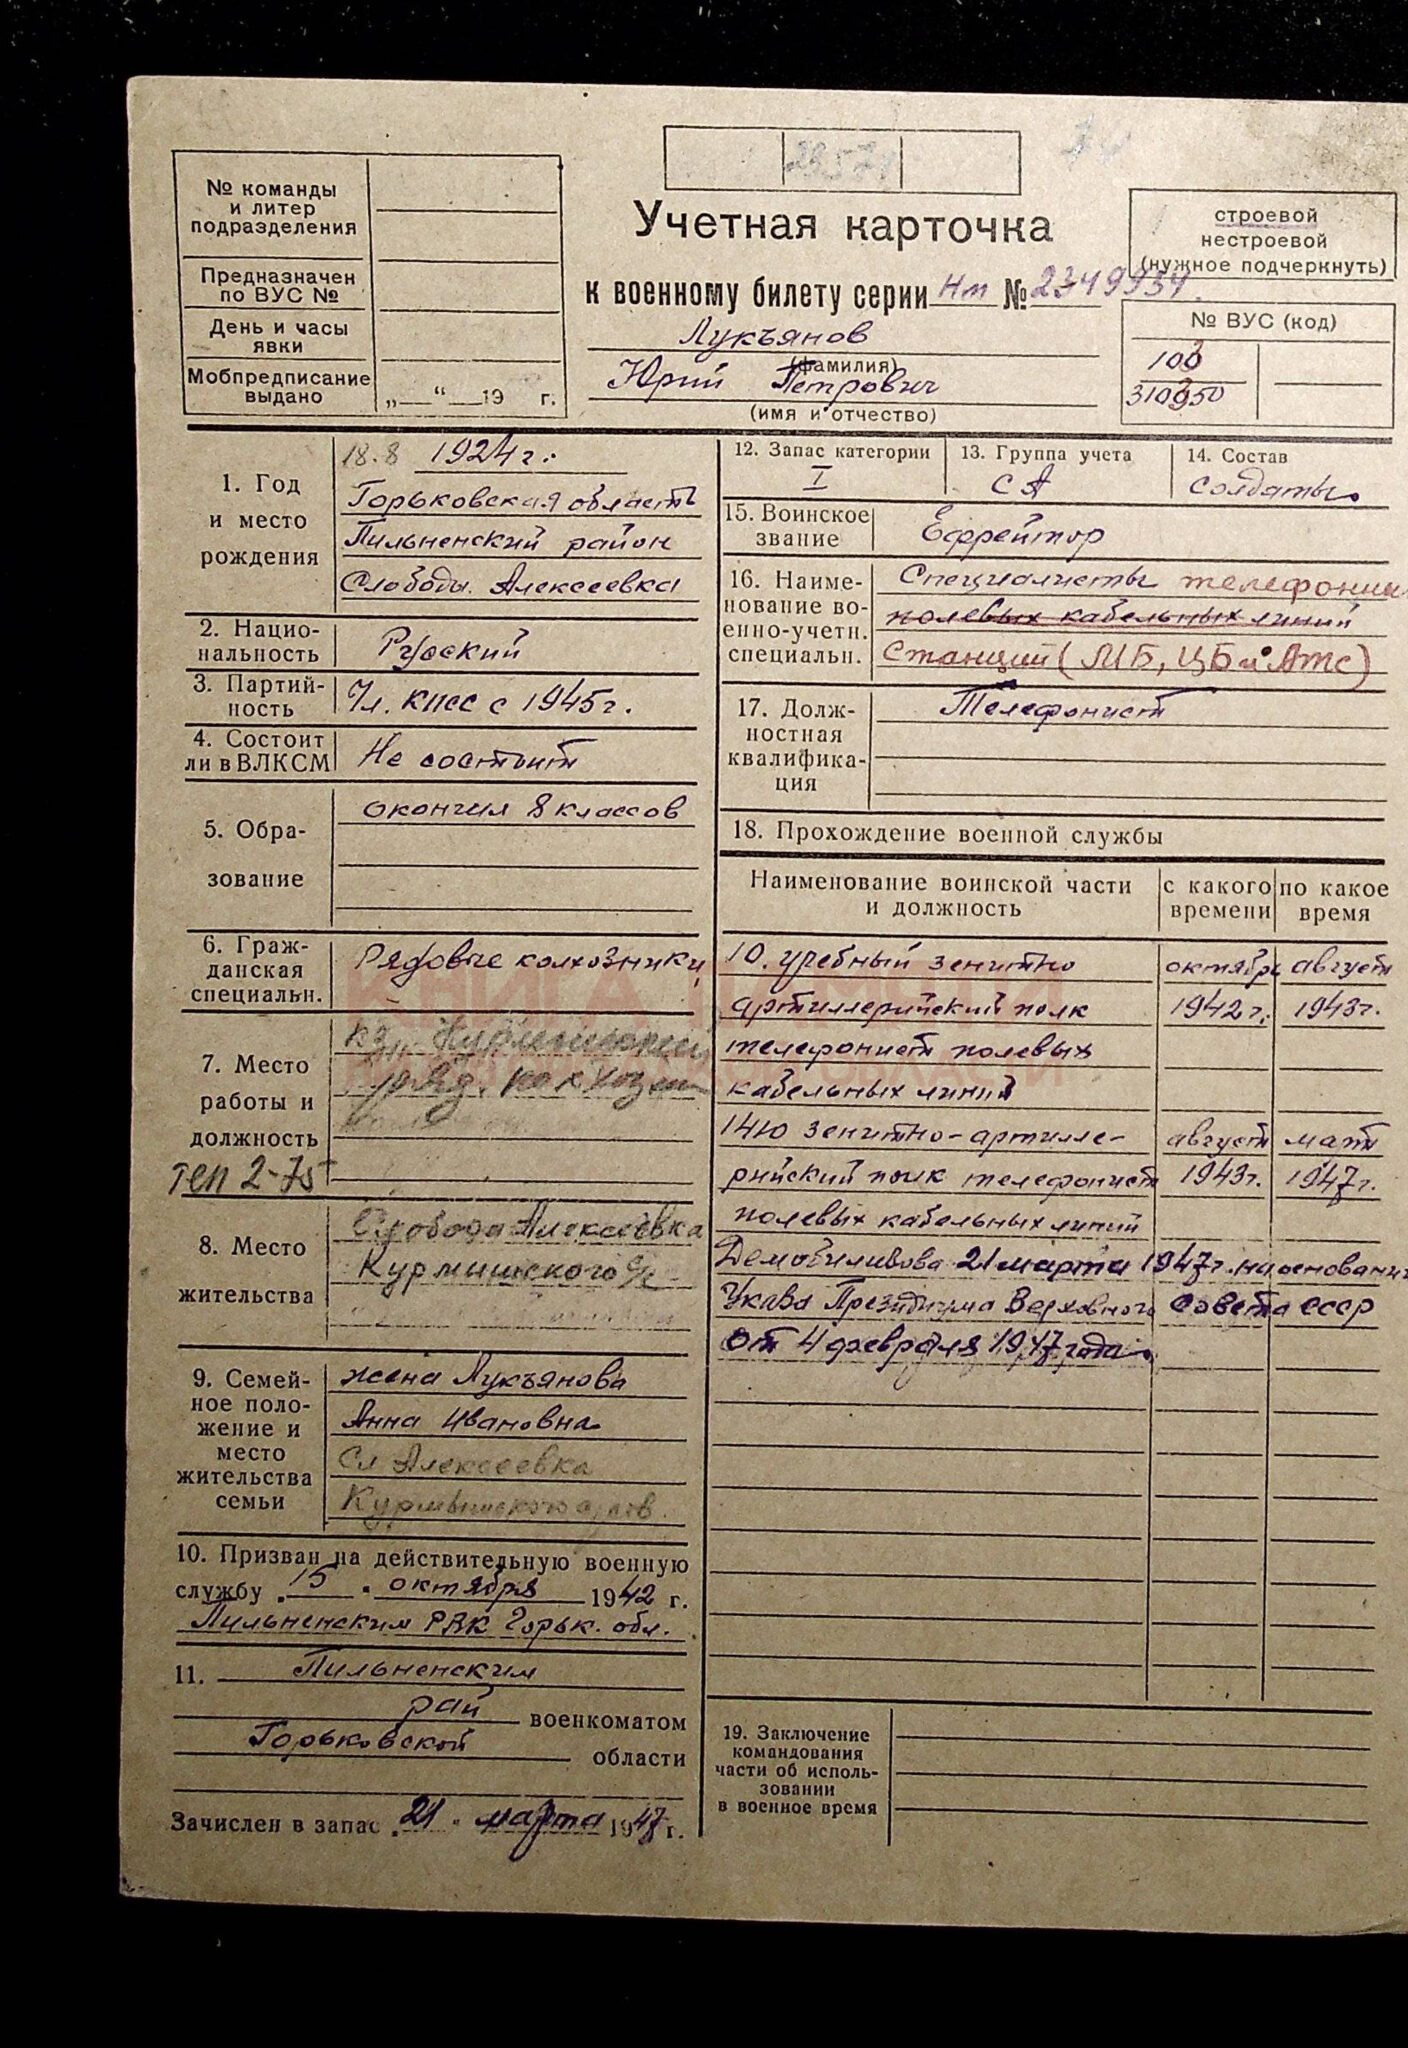 № команды
и литер
подразделения
Предназначен
по ВУС №
День и часы
явки
Мобпредписание
выдано
„ “ 19 г.
Учетная карточка
к военному билету серии Нт №
Лукъянов
(фамилия)
Юрий Петрович
(имя и отчество)
строевой
нестроевой
(нужное подчеркнуть)
№ ВУС (код)
1. Год
и место
рождения
18.8 1924 г.
Горьковская область
Пильненский район
Слободы. Алексеевка
2. Нацио-
нальность
Русский
3. Партий-
ность
Чл. КПСС с 1945 г.
4. Состоит
ли в ВЛКСМ
Не состоит
5. Обра-
зование
окончил 8 классов
6. Граж-
данская
специальн.
Рядовые колхозники
7. Место
работы и
должность
ряд. колхозн
теп 2-75
8. Место
жительства
Слобода Алексеевка
Курмышского с/с
9. Семей-
ное поло-
жение и
место
жительства
семьи
жена Лукъянова
Анна Ивановна
Сл Алексеевка
Курмышского
10. Призван на действительную военную
службу 15 октября 1942 г.
Пильненским РВК Горьк. обл.
11. Пильненским
рай военкоматом
Горьковской области
Зачислен в запас 21 марта 1947 г.
12. Запас категории
I
13. Группа учета
СА
14. Состав
Солдаты
15. Воинское
звание
Ефрейтор
16. Наиме-
нование во-
енно-учетн.
специальн.
Специалисты телефонных
полевых кабельных линий
Станций (МБ, ЦБ и АТС)
17. Долж-
ностная
квалифика-
ция
Телефонист
18. Прохождение военной службы
Наименование воинской части
и должность
с какого
времени
по какое
время
10. учебный зенитно октябрь август
артиллерийский полк 1942 г. 1943 г.
телефонист полевых
кабельных линий
зенитно-артилле- август март
рийский полк телефонист 1943 г. 1947 г.
полевых кабельных линий
Демобилизован 21 марта 1947 г. на основании
Указа Президиума Верховного Совета СССР
от 4 февраля 1947 года
19. Заключение
командования
части об исполь-
зовании
в военное время
КНИГА ПАМЯТИ
НИЖЕГОРОДСКОЙ ОБЛАСТИ